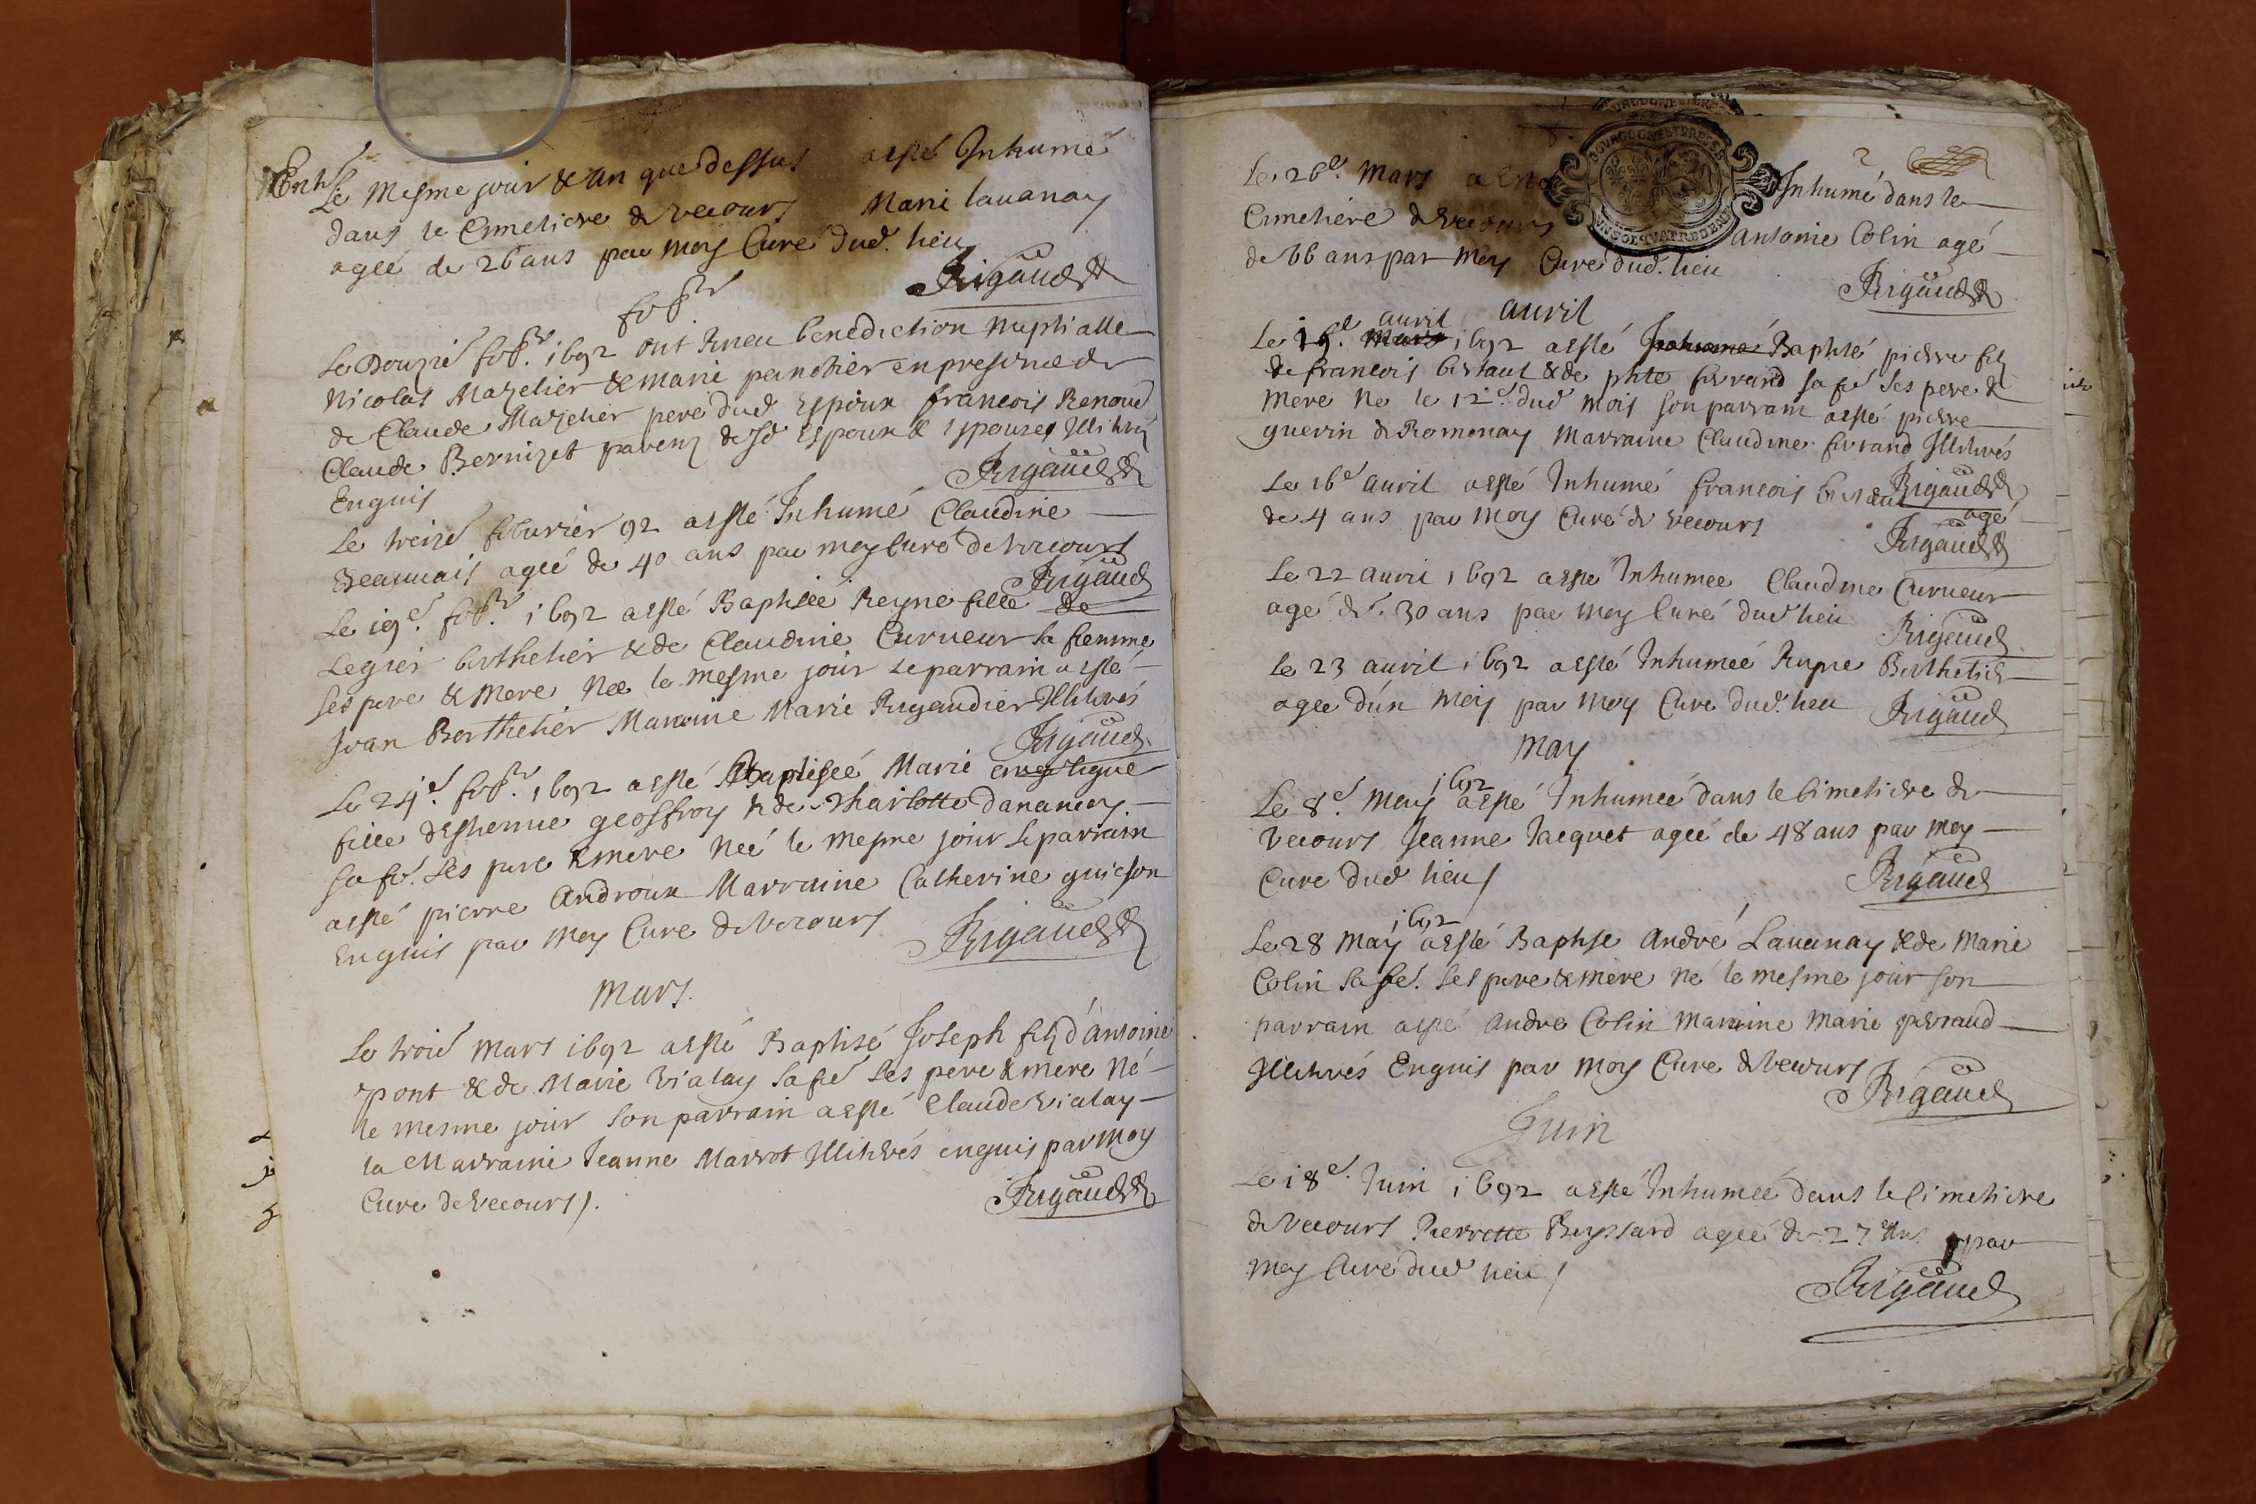 Enh.
Le Mesme jour & an que dessus a esté Inhumé
dans le Cimetiere de vecours Marie lauanay
ageé de 26 ans par moy Curé dud. lieu
Rigaud
febr
Le Douzié febr. 1692 ont Receu benediction Nuptialle
Nicolas Mazelier & marie panchier en presence de
de Claude Mazelier pere dud Espoux francois Renoud
Claude Bernizet parenz desd Espoux & Espouse Illitrés
Enquis
Rigaud
Le treizé feburier 92 a esté Inhumé Claudine
Beauuais ageé de 40 ans par moy Curé de vecours
Rigaud
Le 19e. febr. 1692 a esté Baptiseé Reyne fille de
Legier berthelier & de Claudine Curueur sa femme
ses pere & mere Neé le mesme jour le parrain a esté
Jean Berthelier Maraine Marie Rigaudier Illitrés
Rigaud
Le 24e. febr. 1692 a esté Baptiseé Marie
fille d'Estienne geoffroy & de Charlotte danancay
sa fé. ses pere & mere Neé le mesme jour le parrain
a esté pierre Androux Marraine Catherine guicson
Enquis par moy Curé de Vecours
Rigaud
Mars.
Le troié mars 1692 a esté Baptisé Joseph filz d'antoine
pont & de Marie Vialay sa fé ses pere & mere Né
le mesme jour son parrain a esté Claude Vialay
la Marraine Jeanne Marrot Illitrés enquis par moy
Curé de Vecours).
Rigaud
2
Le 26e. Mars a esté Inhumé dans le
Cimetiére de Vecours antoine Colin agé
de 66 ans par moy Curé dud. lieu
Rigaud
auril
auril
Le 19e. mars 1692 a esté Inhumé Baptisé pierre filz
de francois bertaut & de ferrand sa fé ses pere &
mere Né le 12e. dud mois son parrain a esté pierre
guerin de Romenay Marraine Claudine ferrand Illitrés
Rigaud
Le 16e auril a esté Inhumé francois agé
de 4 ans par moy Curé de Vecours
Rigaud
Le 22 auril 1692 a esté Inhumee Claudine Curueur
ageé de 30 ans par moy Curé dud lieu
Rigaud
Le 23 auril 1692 a esté Inhumeé Reyne Berthelier
ageé d'un mois par moy Curé dud. lieu
Rigaud
May
1692
Le 8e. May a esté Inhumeé dans le Cimetiere de
Vecours Jeanne Jacquet ageé de 48 ans par moy
Curé dud lieu
Rigaud
1692
Le 28 May a esté Baptise André Lauanay & de Marie
Colin sa fé. ses pere & mere Né le mesme jour son
parrain a esté andre Colin Maraine Marie perraud
Illitrés Enquis par moy Curé de Vecours
Rigaud
Juin
Le 18e. Juin 1692 a esté Inhumeé dans le Cimetiere
de Vecours Pierrette Beyssard ageé de 27 ans par
moy Curé dud lieu
Rigaud